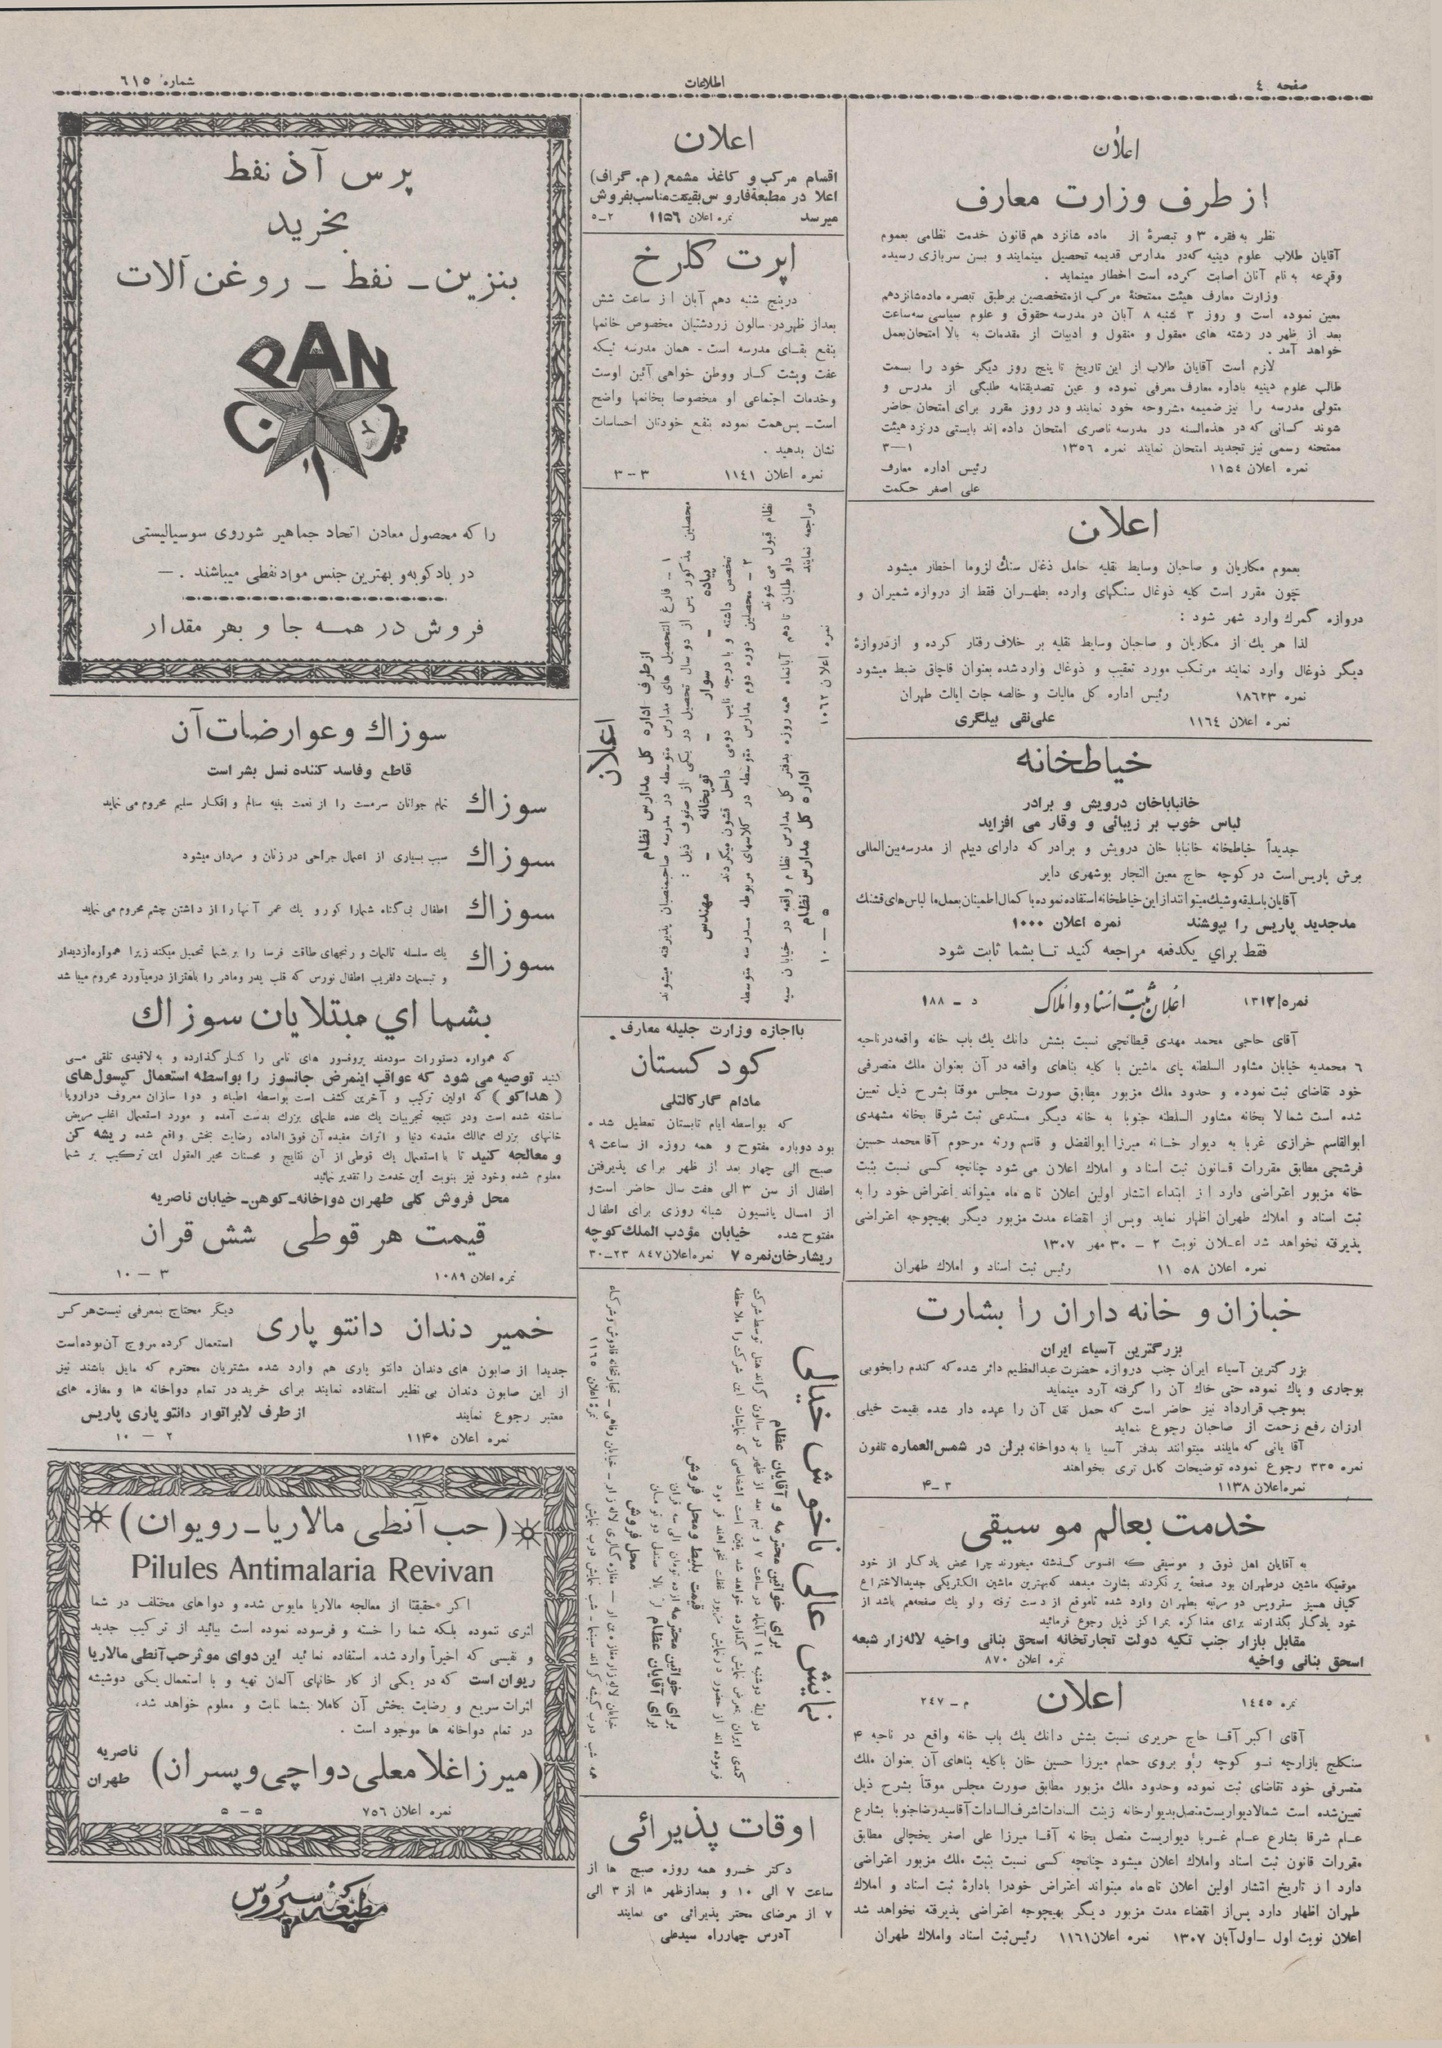 صفحه ٤
اطلاعات
شماره ٦١٥
اعلان
از طرف وزارت معارف
نظر به فقره ٣ و تبصرهٔ از ماده شانزد هم قانون خدمت نظامی بعموم
آقایان طلاب علوم دینیه که در مدارس قدیمه تحصیل مینمایند و بسن سربازی رسیده
وقرعه به نام آنان اصابت کرده است اخطار مینماید .
وزارت معارف هیئت ممتحنهٔ مرکب از متخصصین بر طبق تبصره ماده شانزدهم
معین نموده است و روز ٣ شنبه ٨ آبان در مدرسه حقوق و علوم سیاسی سه ساعت
بعد از ظهر در رشته های معقول و منقول و ادبیات از مقدمات به بالا امتحان بعمل
خواهد آمد .
لازم است آقایان طلاب از این تاریخ تا پنج روز دیگر خود را بسمت
طالب علوم دینیه باداره معارف معرفی نموده و عین تصدیقنامه طلبگی از مدرس و
متولی مدرسه را نیز ضمیمه مشروحه خود نمایند و در روز مقرر برای امتحان حاضر
شوند کسانی که در هذه السنه در مدرسه ناصری امتحان داده اند بایستی در نزد هیئت
ممتحنه رسمی نیز تجدید امتحان نمایند نمره ١٣٥٦ ١—٣
نمره اعلان ١١٥٤ رئیس اداره معارف
علی اصغر حکمت
اعلان
بعموم مکاریان و صاحبان وسایط نقلیه حامل ذغال سنگ لزوما اخطار میشود
چون مقرر است کلیه ذوغال سنگهای وارده بطهران فقط از دروازه شمیران و
دروازه گمرك وارد شهر شود :
لذا هر یك از مکاریان و صاحبان وسایط نقلیه بر خلاف رفتار کرده و از دروازهٔ
دیگر ذوغال وارد نمایند مرتکب مورد تعقیب و ذوغال وارد شده بعنوان قاچاق ضبط میشود
نمره ١٨٦٢٣ رئیس اداره کل مالیات و خالصه جات ایالت طهران
نمره اعلان ١١٦٤ علی نقی بیلگری
خیاطخانه
خانباباخان درویش و برادر
لباس خوب بر زیبائی و وقار می افزاید
جدیداً خیاطخانه خانبابا خان درویش و برادر که دارای دیپلم از مدرسه بین المللی
برش پاریس است در کوچه حاج معین التجار بوشهری دایر
آقایان باسلیقه و شیك میتوانند از این خیاطخانه استفاده نموده با کمال اطمینان بعمل ما لباس های قشنك
مد جدید پاریس را بپوشند نمره اعلان ١٠٠٠
فقط برای یکدفعه مراجعه کنید تا بشما ثابت شود
نمره ١٣١٢١ اعلان ثبت اسناد و املاك د — ١٨٨
آقای حاجی محمد مهدی قیطانچی نسبت بشش دانك یك باب خانه واقعه در ناحیه
٦ محمدیه خیابان مشاور السلطنه پای ماشین با کلیه بناهای واقعه در آن بعنوان ملك متصرفی
خود تقاضای ثبت نموده و حدود ملك مزبور مطابق صورت مجلس موقتا بشرح ذیل تعیین
شده است شمالا بخانه مشاور السلطنه جنوبا به خانه دیگر مستدعی ثبت شرقا بخانه مشهدی
ابوالقاسم خرازی غربا به دیوار خانه میرزا ابوالفضل و قاسم ورثه مرحوم آقا محمد حسین
فرشچی مطابق مقررات قانون ثبت اسناد و املاك اعلان می شود چنانچه کسی نسبت بثبت
خانه مزبور اعتراضی دارد از ابتداء انتشار اولین اعلان تا ٥ ماه میتواند اعتراض خود را به
ثبت اسناد و املاك طهران اظهار نماید و پس از انقضاء مدت مزبور دیگر بهیچوجه اعتراضی
پذیرفته نخواهد شد اعلان نوبت ٢ — ٣٠ مهر ١٣٠٧
نمره اعلان ١١٥٨ رئیس ثبت اسناد و املاك طهران
خبازان و خانه داران را بشارت
بزرگترین آسیاء ایران
بزرگترین آسیاء ایران جنب دروازه حضرت عبدالعظیم دائر شده که گندم را بخوبی
بوجاری و پاك نموده حتی خاك آن را گرفته آرد مینماید
بموجب قرارداد نیز حاضر است که حمل نقل آن را عهده دار شده بقیمت خیلی
ارزان رفع زحمت از صاحبان رجوع بنماید
آقایانی که مایلند میتوانند بدفتر آسیا یا به دواخانه برلن در شمس العماره تلفون
نمره ٣٣٥ رجوع نموده توضیحات کامل تری بخواهند
نمره اعلان ١١٣٨ ٣—٤
خدمت بعالم موسیقی
به آقایان اهل ذوق و موسیقی که افسوس گذشته میخورند چرا محض یادگار از خود
موقعیکه ماشین در طهران بود صفحهٔ پر نکردند بشارت میدهد که بهترین ماشین الکتریکی جدیدالاختراع
کمپانی هیسز سترویس دو مرتبه بطهران وارد شده تا موقع از دست نرفته ولو یك صفحه هم باشد از
خود یادگار بگذارند برای مذاکره بمراکز ذیل رجوع فرمائید
مقابل بازار جنب تکیه دولت تجارتخانه اسحق بنانی واخیه لاله زار شعبه
اسحق بنانی واخیه نمره اعلان ٨٧٠
نمره ١٤٤٥ اعلان م — ٢٤٧
آقای اکبر آقا حاج حریری نسبت بشش دانك یك باب خانه واقع در ناحیه ٤
سنگلج بازارچه نو کوچه رو بروی حمام میرزا حسین خان باکلیه بناهای آن بعنوان ملك
متصرفی خود تقاضای ثبت نموده وحدود ملك مزبور مطابق صورت مجلس موقتاً بشرح ذیل
تعیین شده است شمالا دیواریست متصل بدیوار خانه زینت السادات اشرف السادات آقا سید رضا جنوبا بشارع
عام شرقا بشارع عام غربا دیواریست متصل بخانه آقا میرزا علی اصغر یخچالی مطابق
مقررات قانون ثبت اسناد واملاك اعلان میشود چنانچه کسی نسبت بثبت ملك مزبور اعتراضی
دارد از تاریخ انتشار اولین اعلان تا ٥ ماه میتواند اعتراض خودرا بادارهٔ ثبت اسناد و املاك
طهران اظهار دارد پس از انقضاء مدت مزبور دیگر بهیچوجه اعتراضی پذیرفته نخواهد شد
اعلان نوبت اول — اول آبان ١٣٠٧ نمره اعلان ١١٦١ رئیس ثبت اسناد واملاك طهران
اعلان
اقسام مرکب و کاغذ مشمع (م. گراف)
اعلا در مطبعهٔ فاروس بقیمت مناسب بفروش
میرسد نمره اعلان ١١٥٦ ٢—٥
اپرت گلرخ
در پنج شنبه دهم آبان از ساعت شش
بعداز ظهر در سالون زردشتیان مخصوص خانمها
بنفع بقای مدرسه است . همان مدرسه ئیکه
عفت وپشت کار ووطن خواهی آئین اوست
وخدمات اجتماعی او مخصوصا بخانمها واضح
است — پس همت نموده بنفع خودتان احساسات
نشان بدهید .
نمره اعلان ١١٤١ ٣ — ٣
اعلان
از طرف اداره کل مدارس نظام
١ — فارغ التحصیل های مدارس متوسطه در مدرسه صاحبمنصبان پذیرفته میشوند
محصلین مذکور پس از دو سال تحصیل در یکی از صنوف ذیل :
پیاده — سوار — توپخانه — مهندس
تخصص داشته و با درجه نایب دومی داخل قشون میگردند
٢ — محصلین دوره دوم مدارس متوسطه در کلاسهای مربوطه مدرسه متوسطه
نظام قبول می شوند
داوطلبان تا دهم آبانماه همه روزه بدفتر کل مدارس نظام واقعه در خیابان سپه
مراجعه نمایند اداره کل مدارس نظام
نمره اعلان ١٠٦٢ ٥ — ١٠
بااجازه وزارت جلیله معارف
کودکستان
مادام گارکالتلی
که بواسطه ایام تابستان تعطیل شده
بود دوباره مفتوح و همه روزه از ساعت ٩
صبح الی چهار بعد از ظهر برای پذیرفتن
اطفال از سن ٣ الی هفت سال حاضر است و
از امسال پانسیون شبانه روزی برای اطفال
مفتوح شده خیابان مؤدب الملك کوچه
ریشار خان نمره ٧ نمره اعلان ٨٤٧ ٢٣—٣٠
نمایش عالی ناخوش خیالی
برای خواتین محترمه و آقایان عظام
در لیلهٔ دوشنبه ١٤ آبانماه در ساعت ٧ و نیم بعد از ظهر در سالون گراند هتل توسط شرکت
کمدی ایران بمعرض نمایش گذارده خواهد شد یقین است اشخاصی که نمایشات این شرکت را ملاحظه
فرموده اند از حضور در نمایش مزبور غفلت نخواهند فرمود
قیمت بلیط ومحل فروش
برای خواتین محترمه از ده تومان الی سه قران
برای آقایان عظام از بالا صندل دو تومان
محل فروش
اوقات پذیرائی
دکتر خسرو همه روزه صبح ها از
ساعت ٧ الی ١٠ و بعداز ظهر ها از ٣ الی
٧ از مرضای محترم پذیرائی می نمایند
آدرس چهارراه سیدعلی
پرس آذ نفط
بخرید
بنزین — نفط — روغن آلات
PAN
را که محصول معادن اتحاد جماهیر شوروی سوسیالیستی
در بادکوبه و بهترین جنس مواد نفطی میباشند . —
فروش در همه جا و بهر مقدار
سوزاك وعوارضات آن
قاطع وفاسد کننده نسل بشر است
سوزاك تمام جوانان سرمست را از نعمت بنیه سالم و افکار سلیم محروم می نماید
سوزاك سبب بسیاری از اعمال جراحی در زنان و مردان میشود
سوزاك اطفال بی گناه شمارا کور و یك عمر آنها را از داشتن چشم محروم می نماید
سوزاك یك سلسله تألمات و رنجهای طاقت فرسا را بر شما تحمیل میکند زیرا همواره از دیدار
و تبسمات دلفریب اطفال نورس که قلب پدر ومادر را باهتزاز در میآورد محروم میباشد
بشما ای مبتلایان سوزاك
که همواره دستورات سودمند پروفسور های نامی را کنار گذارده و به لاقیدی تلقی می
کنید توصیه می شود که عواقب اینمرض جانسوز را بواسطه استعمال کپسول های
( هداکو ) که اولین ترکیب و آخرین کشف است بواسطه اطباء و دوا سازان معروف در اروپا
ساخته شده است ودر نتیجه تجربیات یك عده علمای بزرك بدست آمده و مورد استعمال اغلب مریض
خانهای بزرك ممالك متمدنه دنیا و اثرات مفیده آن فوق العاده رضایت بخش واقع شده ریشه کن
و معالجه کنید تا با استعمال یك قوطی از آن نتایج و محسنات محیر العقول این ترکیب بر شما
معلوم شده وخود نیز بنوبت این خدمت را تقدیر نمائید
محل فروش کلی طهران دواخانه — کوهن — خیابان ناصریه
قیمت هر قوطی شش قران
نمره اعلان ١٠٨٩ ٣ — ١٠
خمیر دندان دانتو پاری
دیگر محتاج بمعرفی نیست هر کس
استعمال کرده مروج آن بوده است
جدیدا از صابون های دندان دانتو پاری هم وارد شده مشتریان محترم که مایل باشند نیز
از این صابون دندان بی نظیر استفاده نمایند برای خرید در تمام دواخانه ها و مغازه های
معتبر رجوع نمایند از طرف لابراتوار دانتو پاری پاریس
نمره اعلان ١١٤٠ ٢ — ١٠
(حب آنطی مالاریا — رویوان)
Pilules Antimalaria Revivan
اکر حقیقتا از معالجه مالاریا مایوس شده و دواهای مختلف در شما
اثری ننموده بلکه شما را خسته و فرسوده نموده است بیائید از ترکیب جدید
و نفیسی که اخیراً وارد شده استفاده نمائید این دوای موثر حب آنطی مالاریا
ریوان است که در یکی از کار خانهای آلمان تهیه و با استعمال یکی دوشیشه
اثرات سریع و رضایت بخش آن کاملا بشما ثابت و معلوم خواهد شد .
در تمام دواخانه ها موجود است .
(میرزاغلامعلی دواچی و پسران) ناصریه
طهران
نمره اعلان ٧٥٦ ٥ — ٥
مطبعه سیروس